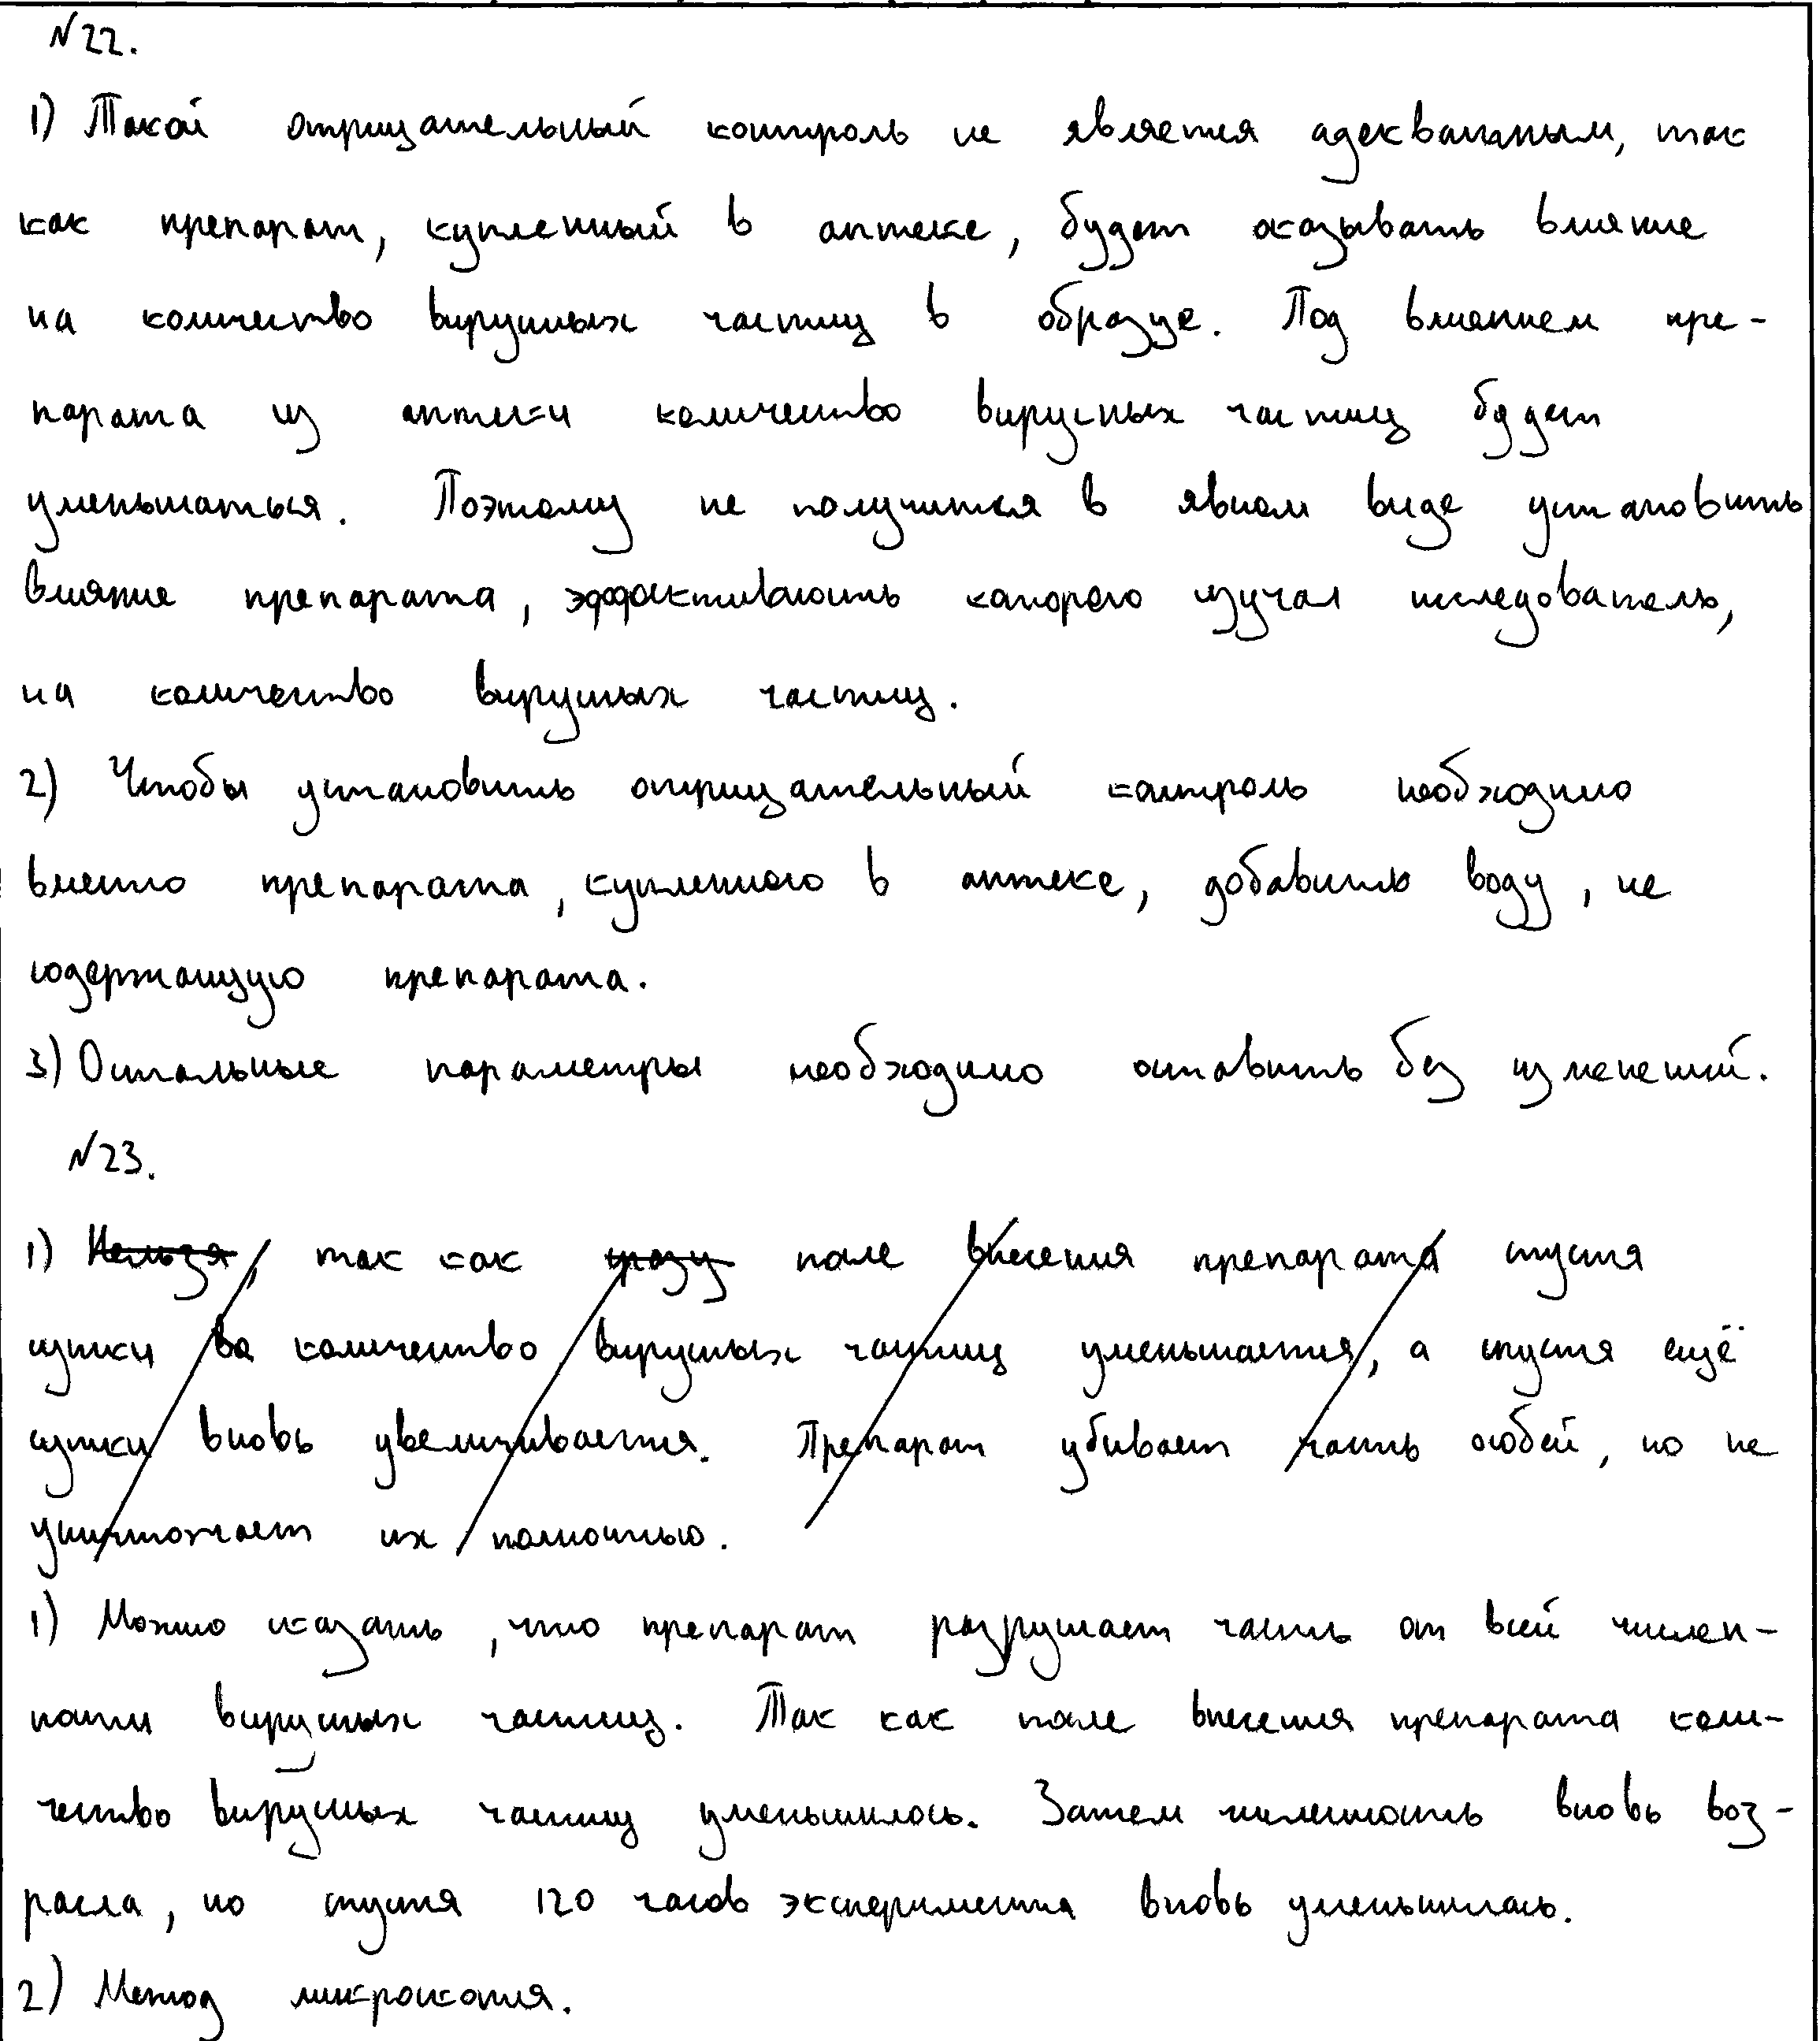 №22.
1) Такой отрицательный контроль не является адекватным, так
как препарат, купленный в аптеке, будет оказывать влияние
на количество вирусных частиц в образце. Под влиянием пре-
парата из аптеки количество вирусных частиц будет
уменьшаться. Поэтому не получится в явном виде установить
влияние препарата, эффективность которого изучал исследователь,
на количество вирусных частиц.
2) Чтобы установить отрицательный контроль необходимо
вместо препарата, купленного в аптеке, добавить воду, не
содержащую препарата.
3) Остальные параметры необходимо оставить без изменений.
№23.
1) Нельзя, так как сразу после внесения препарата спустя
сутки во количество вирусных частиц уменьшается, а спустя ещё
сутки вновь увеличивается. Препарат убивает часть особей, но не
уничтожает их полностью.
1) Можно сказать, что препарат разрушает часть от всей числен-
ности вирусных частиц. Так как после внесения препарата коли-
чество вирусных частиц уменьшилось. Затем численность вновь воз-
расла, но спустя 120 часов эксперимента вновь уменьшилась.
2) Метод микроскопия.